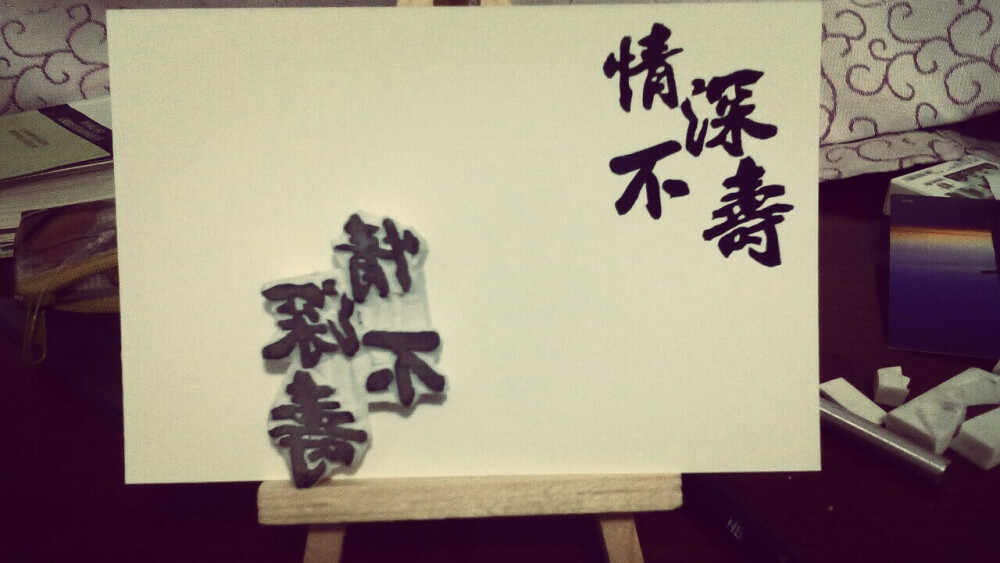 情深
不壽
情深
不壽
HB